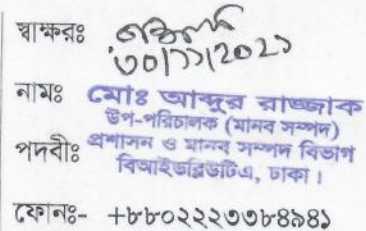 স্বাক্ষরঃ
৩০/১১/2021
নামঃ মোঃ আব্দুর রাজ্জাক
উপ-পরিচালক (মানব সম্পদ)
পদবীঃ প্রশাসন ও মানব সম্পদ বিভাগ
বিআইডব্লিউটিএ, ঢাকা।
ফোনঃ- +৮৮০২২২৩৩৮৪৯৪১